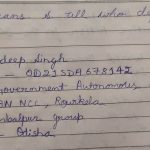 eans & tell who de
deep Singh
- OD21SDA678142
overnment Autonomous
BN NCC, Rourkela
mbalpur group
- Odisha